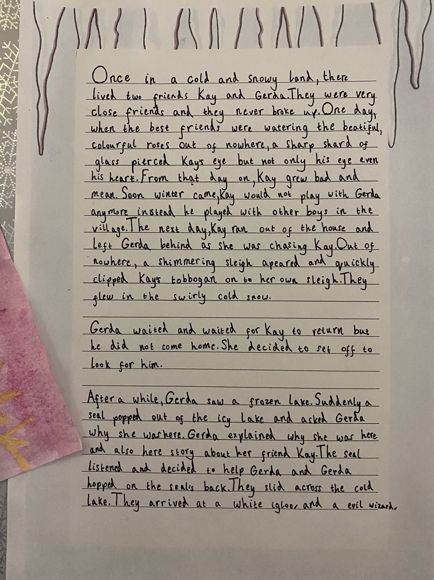 Once in a cold and snowy land, there
lived two friends Kay and Gerda.They were very
close friends and they never broke up.One day,
when the best friends were watering the beatiful,
colourful roses out of nowhere, a sharp shard of
glass pierced Kays eye but not only his eye even
his heart.From that day on, Kay grew bad and
mean.Soon winter came,Kay would not play with Gerda
anymore instead he played with other boys in the
village.The next day,Kay ran out of the house and
left Gerda behind as she was chasing Kay.Out of
nowhere, a shimmering sleigh apeared and quickly
clipped Kays tobbogan on to her own sleigh.They
flew in the swirly cold snow.
Gerda waited and waited for Kay to return but
he did not come home.She decided to set off to
look for him.
After a while, Gerda saw a frozen lake.Suddenly a
seal popped out of the icy lake and asked Gerda
why she was here.Gerda explained why she was here
and also here story about her friend Kay.The seal
listened and decided to help Gerda and Gerda
hopped on the seals back.They slid across the cold
lake.They arrived at a white igloo and a evil wizard.